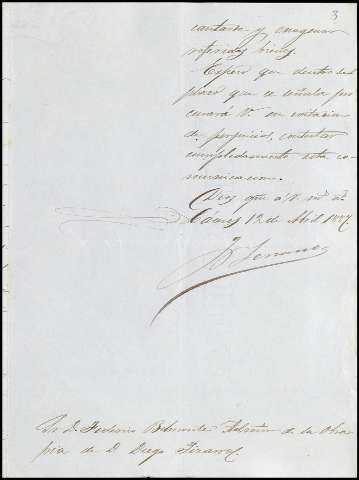 3
cautarse y enagenar
referidos bienes.
Espero que dentro del
plazo que se señala pro
curará V. en evitación
de perjuicios, contestar
cumplidamente esta co-
municacion.
Dios gue a V. ms. as.
Cáceres 12 de Abril 1877.
Sr. D. Federico Patron de la Obra
pia de D. Diego